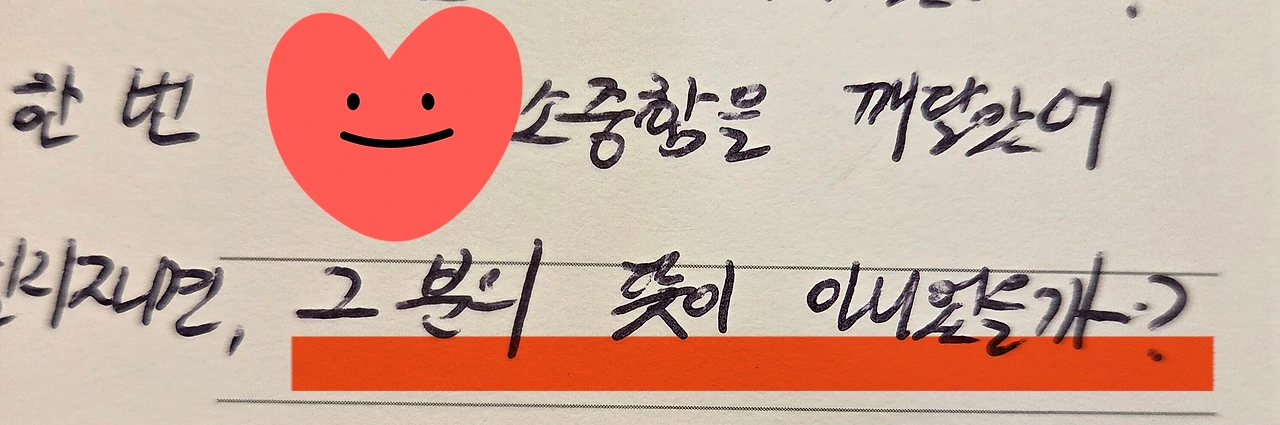 한 번 소중함을 깨달았어
지지면, 그 분의 뜻이 아니었을까?